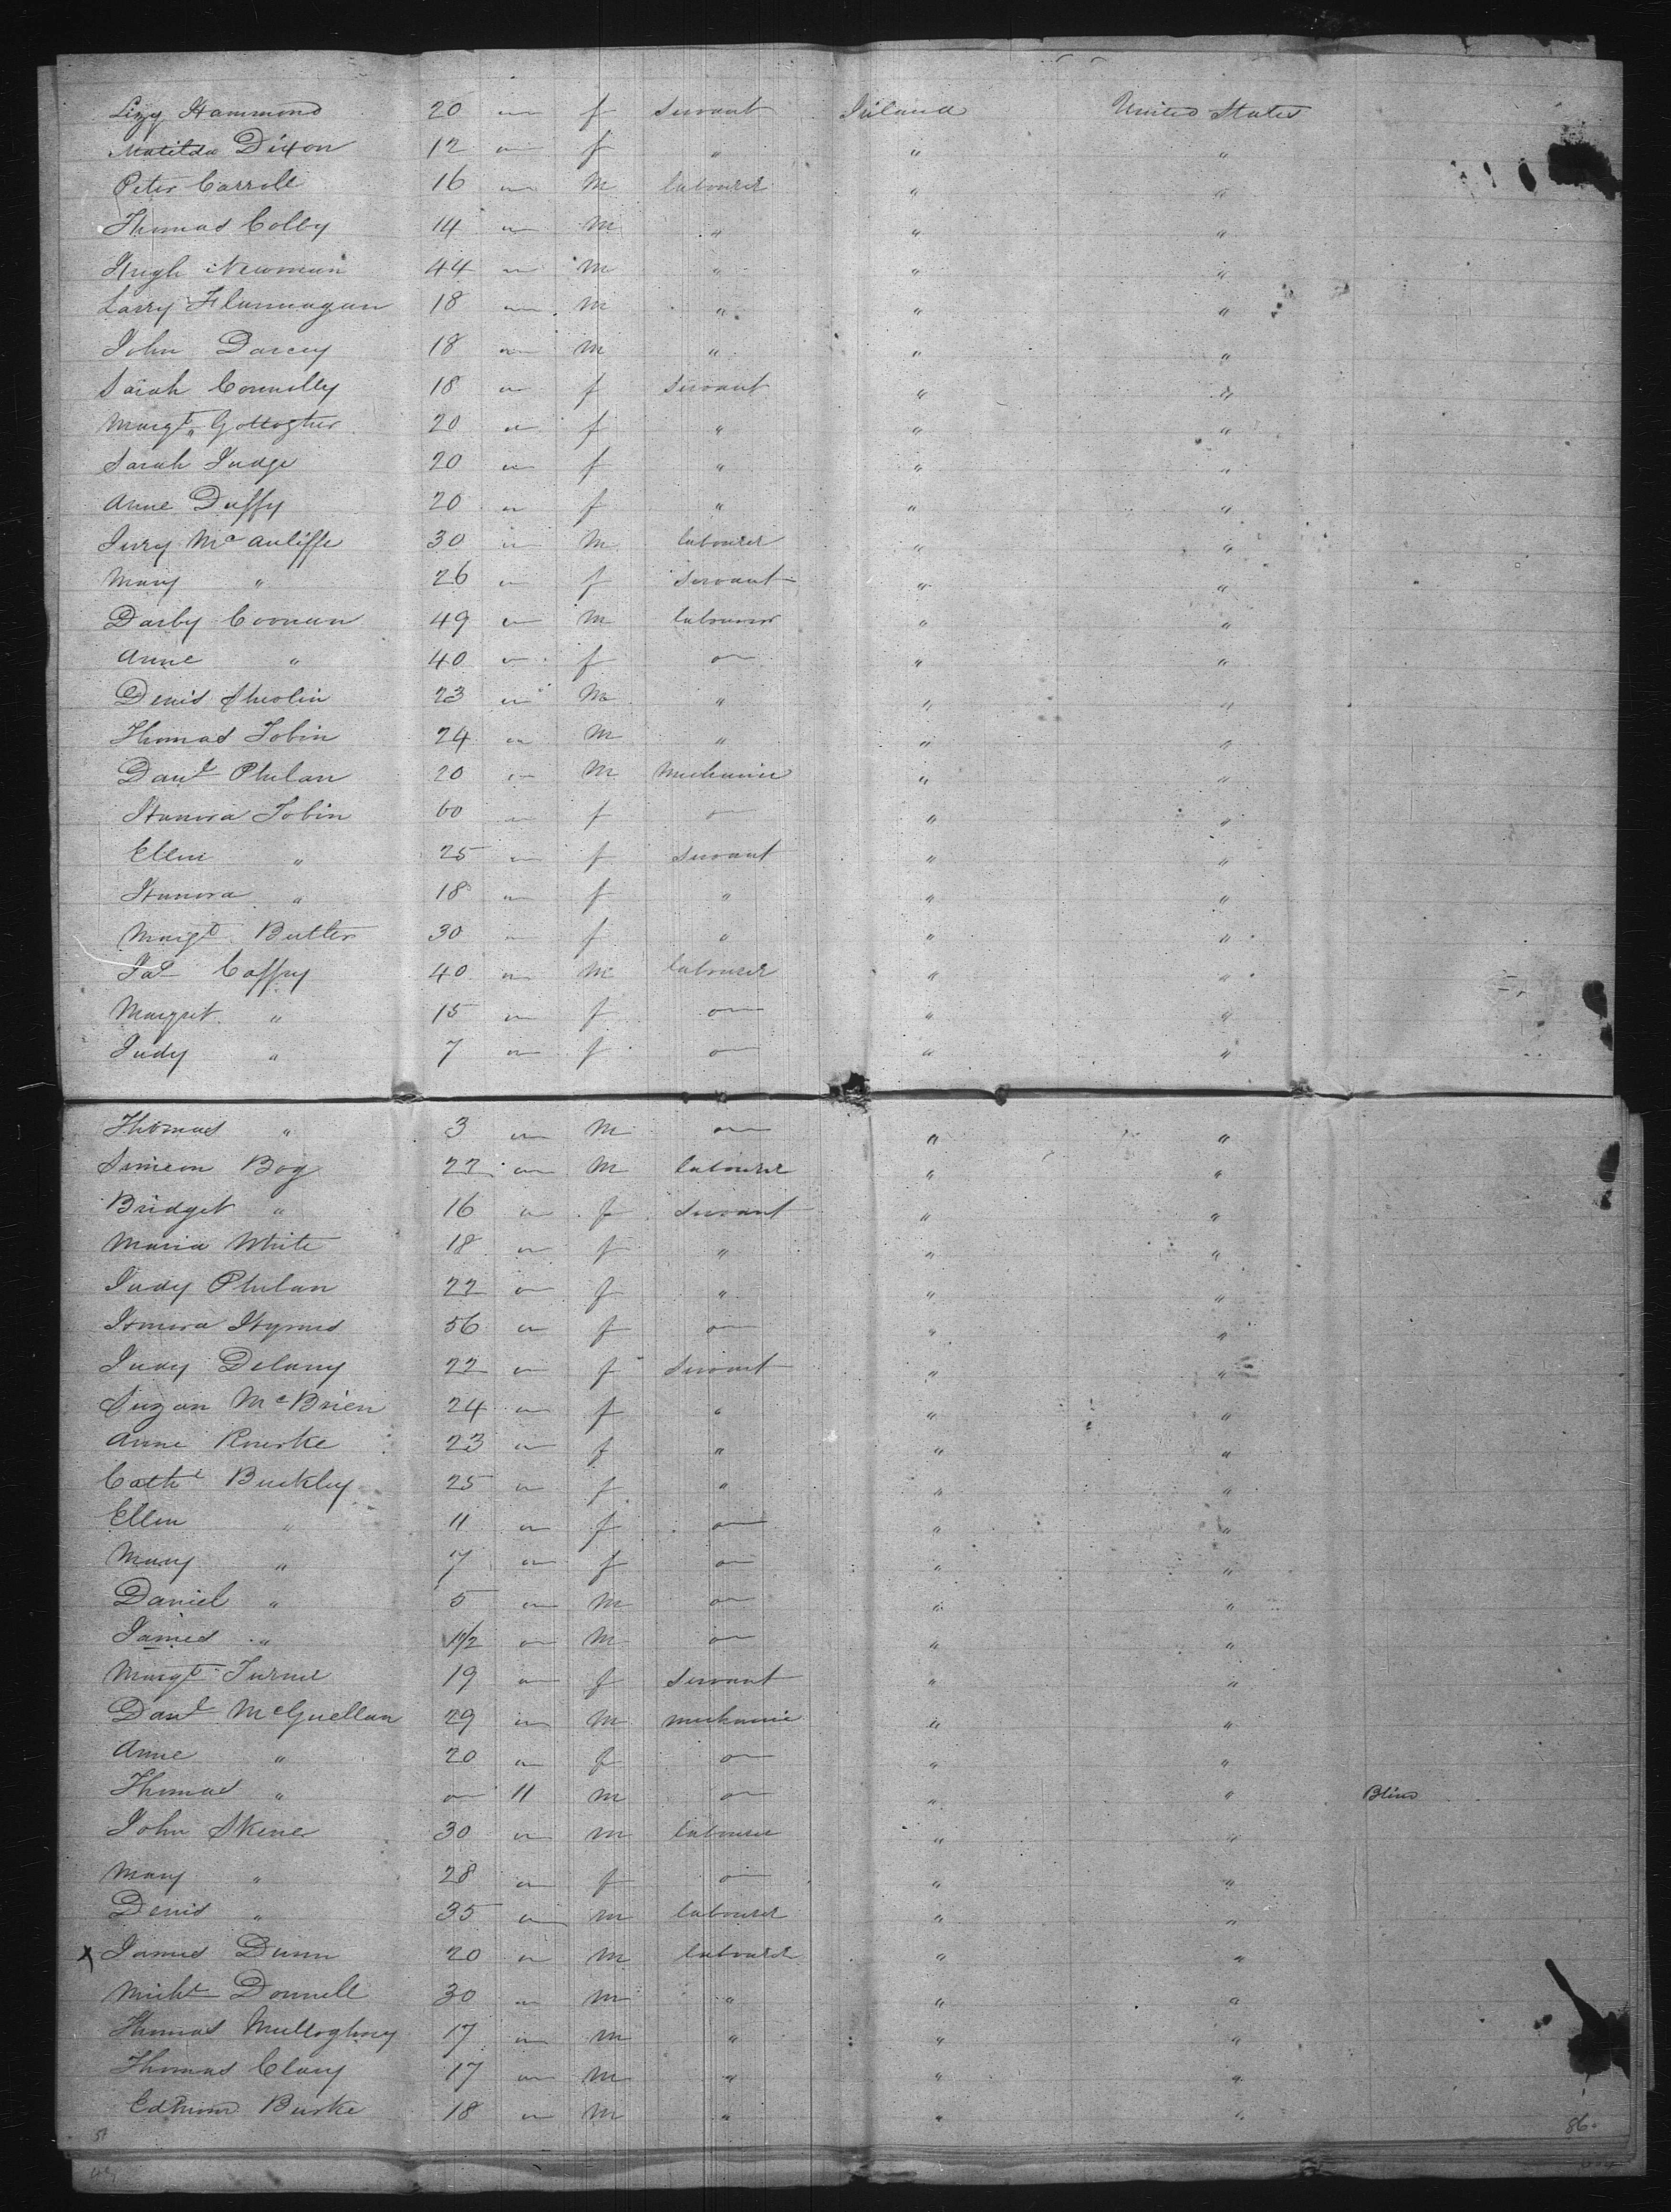 Lizy Hammond 20 " f Servant Ireland United States
Matilda Dixon 12 " f " " "
Peter Carroll 16 " M labourer " "
Thomas Colby 14 " M " " "
Hugh Newman 44 " M " " "
Larry Flannagan 18 " M " " "
John Darcey 18 " M " " "
Sarah Connolly 18 " f Servant " "
Margt Gollogher 20 " f " " "
Sarah Judge 20 " f " " "
Anne Duffy 20 " f " " "
Jury McAuliffe 30 " M labourer " "
Mary " 26 " f Servant " "
Darby Coonan 49 " M labourer " "
Anne " 40 " f " " "
Denis Sheolin 23 " M " " "
Thomas Tobin 24 " M " " "
Danl Phelan 20 " M Mechanic " "
Hanora Tobin 60 " f " " "
Ellen " 25 " f Servant " "
Hanora " 18 " f " " "
Margt Butler 30 " f " " "
Pat Caffry 40 " M labourer " "
Margret " 15 " f " " "
Judy " 7 " f " " "
Thomas " 3 " M " " "
Simeon Bog 22 " M labourer " "
Bridget " 16 " f Servant " "
Maria White 18 " f " " "
Judy Phelan 22 " f " " "
Honora Hyrnes 56 " f " " "
Judy Delany 22 " f Servant " "
Suzan McBrien 24 " f " " "
Anne Rourke 23 " f " " "
Cathe Buckley 25 " f " " "
Ellen " 11 " f " " "
Mary " 7 " f " " "
Daniel " 5 " M " " "
James " 1 1/2 " M " " "
Margt Turner 19 " f Servant " "
Danl McGuellan 29 " M mechanic " "
Anne " 20 " f " " "
Thomas " " 11 M " " " Blind
John Skener 30 " M labourer " "
Mary " 28 " f " " "
Denis " 35 " M labourer " "
x James Dunn 20 " M labourer " "
Michl Donnell 30 " M " " "
Thomas Mulloghney 17 " M " " "
Thomas Clary 17 " M " " "
Edmund Burke 18 " M " " "
51 86